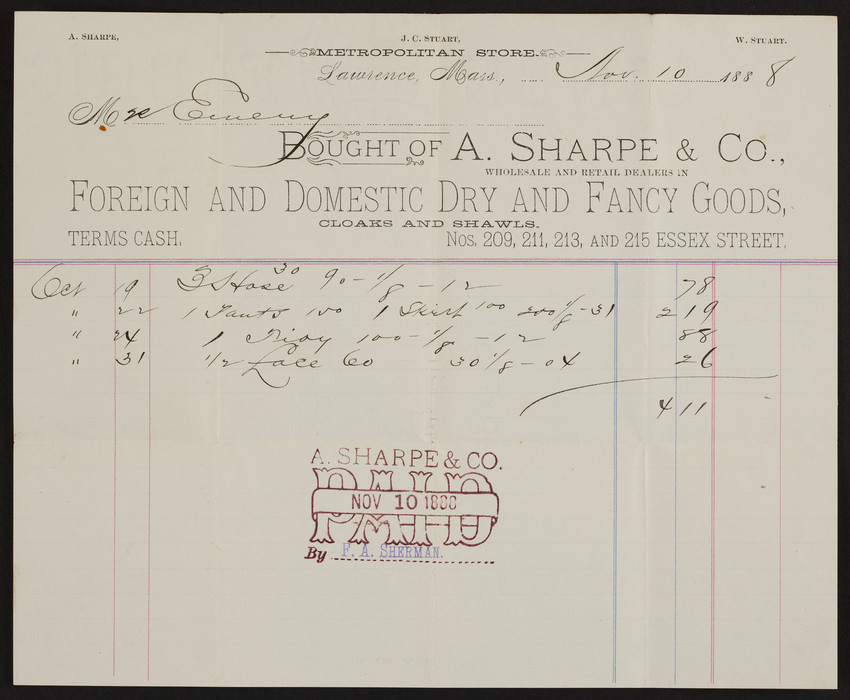 A. SHARPE,
J. C. STUART,
W. STUART.
METROPOLITAN STORE.
Lawrence, Mass., Nov. 10 1888
Emery
BOUGHT OF A. SHARPE & CO.,
WHOLESALE AND RETAIL DEALERS IN
FOREIGN AND DOMESTIC DRY AND FANCY GOODS,
CLOAKS AND SHAWLS.
TERMS CASH.
NOS. 209, 211, 213, AND 215 ESSEX STREET.
Oct 19 3 Hose 30 90 - 1/8 - 12 78
" 22 1 Pants 150 1 Skirt 100 1/8 - 31 2 19
" 24 1 100 - 1/8 - 12 88
" 31 1/2 Lace 60 30 1/8 - 04 26
4 11
A. SHARPE & CO.
PAID
NOV 10 1888
By F. A. SHERMAN.